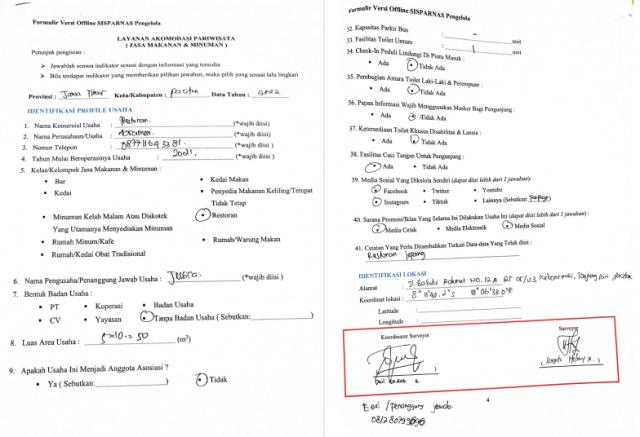 Formulir Versi Offline SISPARNAS Pengelola
LAYANAN AKOMODASI PARIWISATA
( JASA MAKANAN & MINUMAN )
Petunjuk pengisian :
➢ Jawablah semua indikator sesuai dengan informasi yang tersedia
➢ Bila terdapat indikator yang memberikan pilihan jawaban, maka pilih yang sesuai lalu lingkari
Provinsi : Jawa Timur Kota/Kabupaten : pacitan Data Tahun : 2022
IDENTIFIKASI PROFILE USAHA
1. Nama Komersial Usaha : Restoran. (*wajib diisi)
2. Nama Perusahaan/Usaha : (*wajib diisi)
3. Nomor Telepon : (*wajib diisi)
4. Tahun Mulai Beroperasinya Usaha : 2021. (*wajib diisi)
5. Kelas/Kelompok Jasa Makanan & Minuman :
• Bar
• Kedai Makan
• Kedai
• Penyedia Makanan Keliling/Tempat Tidak Tetap
• Minuman Kelab Malam Atau Diskotek Yang Utamanya Menyediakan Minuman
• Restoran
• Rumah Minum/Kafe
• Rumah/Warung Makan
• Rumah/Kedai Obat Tradisional
6. Nama Pengusaha/Penanggung Jawab Usaha : Jessica. (*wajib diisi )
7. Bentuk Badan Usaha :
• PT • Koperasi • Badan Usaha
• CV • Yayasan • Tanpa Badan Usaha ( Sebutkan: )
8. Luas Area Usaha : 5x10 = 50 (m²)
9. Apakah Usaha Ini Menjadi Anggota Asosiasi ?
• Ya ( Sebutkan: ) • Tidak
Formulir Versi Offline SISPARNAS Pengelola
32. Kapasitas Parkir Bus : - unit
33. Fasilitas Toilet Umum : 1 unit
34. Check-In Peduli Lindungi Di Pintu Masuk :
• Ada • Tidak Ada
35. Pembagian Antara Toilet Laki-Laki & Perempuan :
• Ada • Tidak Ada
36. Papan Informasi Wajib Menggunakan Masker Bagi Pengunjung :
• Ada • Tidak Ada
37. Ketersediaan Toilet Khusus Disabilitas & Lansia :
• Ada • Tidak Ada
38. Fasilitas Cuci Tangan Untuk Pengunjung :
• Ada • Tidak Ada
39. Media Sosial Yang Dikelola Sendiri (dapat diisi lebih dari 1 jawaban) :
• Facebook • Twitter • Youtube
• Instagram • Tiktok • Lainnya (Sebutkan: )
40. Sarana Promosi/Iklan Yang Selama Ini Dilakukan Usaha Ini (dapat diisi lebih dari 1 jawaban) :
• Media Cetak • Media Elektronik • Media Sosial
41. Catatan Yang Perlu Ditambahkan Terkait Data-data Yang Telah diisi :
Restoran jepang
IDENTIFIKASI LOKASI
Alamat : Jl. Basuki Rahmat NO. 12 A RT 01/03,
Koordinat lokasi :
Latitude :
Longitude :
Koordinator Surveyor
Surveyor
4
Esri / Penanggung jawab.